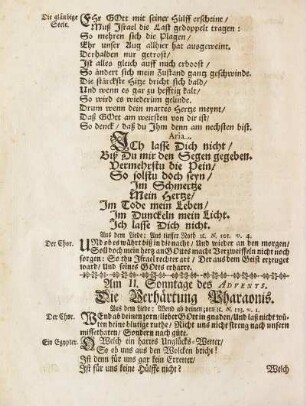 Die gläubige Seele.
EHr GOtt mit seiner Hülff erscheine/
Muß Israel die Last gedoppelt tragen:
So mehren sich die Plagen/
Ehr unser Aug allhier hat ausgeweint.
Derhalben nur getrost/
Ist alles gleich auff mich erboost/
So ändert sich mein Zustand gantz geschwinde.
Die stärckste Hitze bricht sich bald/
Und wenn es gar zu hefftig kalt/
So wird es wiederum gelinde.
Drum wenn dein mattes Hertze meynt/
Daß GOtt am weitsten von dir ist/
So denck/ daß du Ihm denn am nechsten bist.
Aria.
Ich lasse Dich nicht/
Biß Du mir den Segen gegeben.
Vermehrstu die Pein/
So solstu doch seyn/
Im Schmertze
Mein Hertze/
Im Tode mein Leben/
Im Dunckeln mein Licht.
Ich lasse Dich nicht.
Aus dem Liede: Aus tieffer Noth ꝛc. N. 101. v. 4.
Der Chor.
UNd ob es währt biß in die nacht/ Und wieder an den morgen/
Soll doch mein hertz an GOtts macht Verzweiffeln nicht noch
sorgen: So thu Israel rechter art/ Der aus dem Geist erzeuget
ward/ Und seines GOtts erharre.
Am II. Sonntage des ADVENTS.
Die Verhärtung Pharaonis.
Aus dem liede: Wend ab deinen zorn ꝛc. N. 193. v. 1.
Der Chor.
WEnd ab deinen zorn/ lieber GOtt in gnaden/ Und laß nicht wü-
ten deine blutige ruthe/ Richt uns nicht streng nach unsern
missethaten/ Sondern nach güte.
Ein Egypter.
O Welch ein hartes Unglücks-Wetter/
So ob uns aus den Wolcken bricht!
Ist denn für uns gar kein Erretter/
Ist für uns keine Hülffe nicht?
Welch